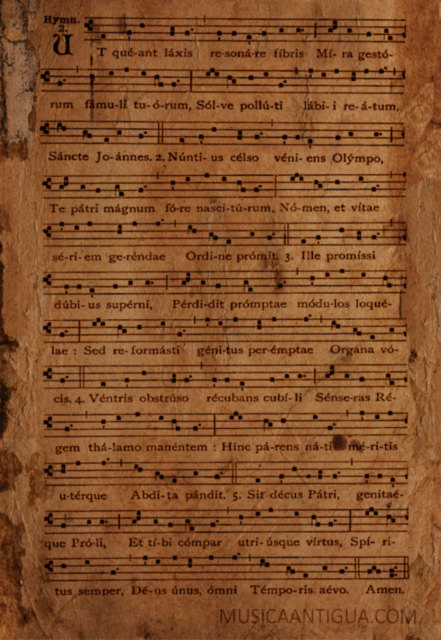 Hymn.
2.
UT qué-ant láxis re-soná-re fíbris Mí-ra gestó-
rum fámu-li tu-ó-rum, Sól-ve pollú-ti lábi-i re-á-tum,
Sáncte Jo-ánnes. 2. Núnti-us célso véni-ens Olýmpo,
Te pátri mágnum fó-re nasci-tú-rum, Nó-men, et vítae
sé-ri-em ge-réndae Ordi-ne prómit. 3. Ille promíssi
dúbi-us supérni, Pérdi-dit prómptae módu-los loqué-
lae : Sed re-formásti géni-tus per-émptae Organa vó-
cis. 4. Véntris obstrúso récubans cubí-li Sénse-ras Ré-
gem thá-lamo manéntem : Hinc pá-rens náti mé-ri-tis
u-térque Abdi-ta pándit. 5. Sit décus Pátri, genitaé-
que Pró-li, Et tí-bi cómpar utri-úsque vírtus, Spí-ri-
tus semper, Dé-us únus, ómni Témpo-ris aévo. Amen.
MUSICAANTIGUA.COM